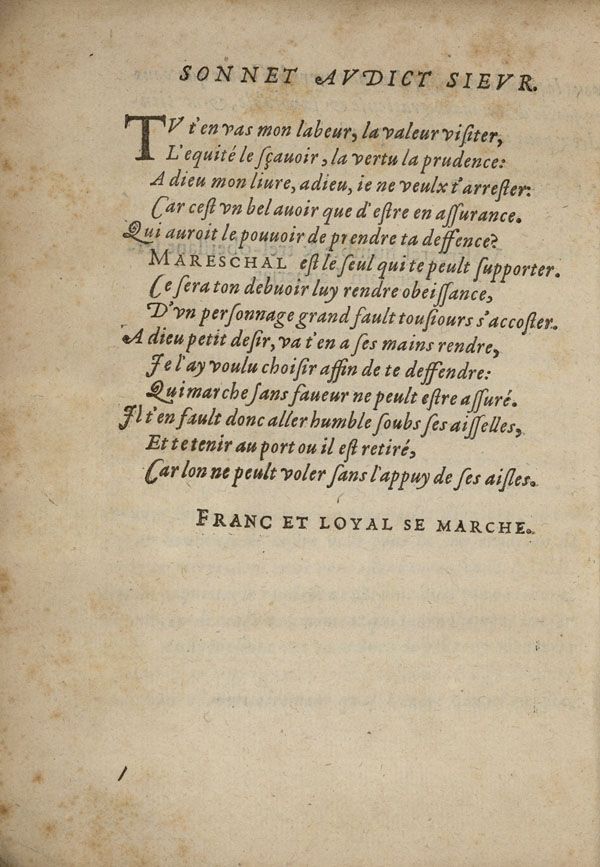 SONNET AVDICT SIEVR.
TV t'en vas mon labeur, la valeur visiter,
L'equité le sçauoir, la vertu la prudence:
A dieu mon liure, adieu, ie ne veulx t'arrester:
Car cest vn bel auoir que d'estre en assurance.
Qui auroit le pouuoir de prendre ta deffence?
MARESCHAL est le seul qui te peult supporter.
Ce sera ton debuoir luy rendre obeissance,
D'vn personnage grand fault tousiours s'accoster.
A dieu petit desir, va t'en a ses mains rendre,
Je l'ay voulu choisir affin de te deffendre:
Qui marche sans faueur ne peult estre assuré.
Jl t'en fault donc aller humble soubs ses aisselles,
Et te tenir au port ou il est retiré,
Car lon ne peult voler sans l'appuy de ses aisles.
FRANC ET LOYAL SE MARCHE.